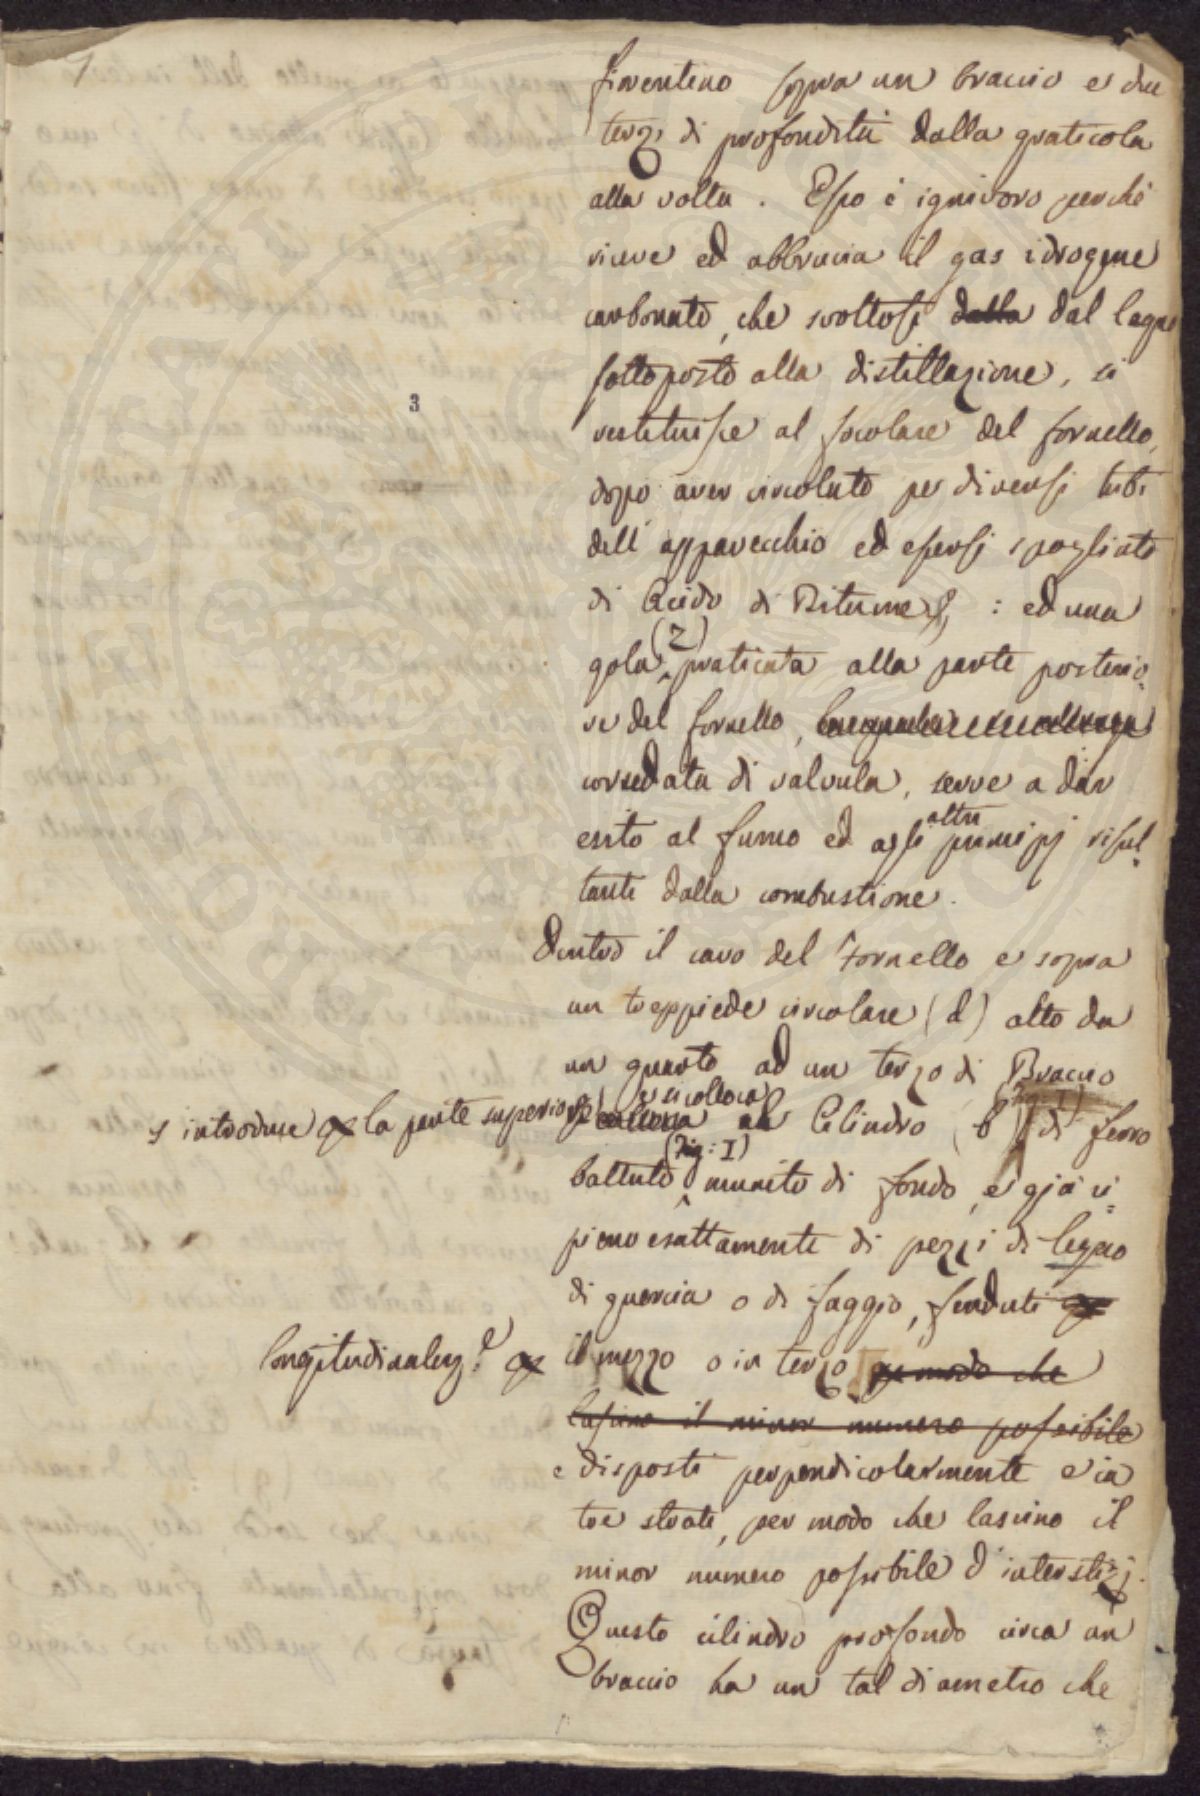 fiorentino sopra un braccio e due
terzi di profondità dalla graticola
alla volta. Esso è ignivoro perchè
riceve ed abbrucia il gas idrogene
carbonato, che svoltosi dalla dal legno
sottoposto alla distillazione, si
restituisce al focolare del fornello,
3
dopo aver circolato per diversi tubi
dell'apparecchio ed essersi spogliato
di Acido di Bitume &: ed una
(2)
gola praticata alla parte posterio-
re del fornello,
corredata di valvula, serve a dar
altri
esito al fumo ed agli principj risul-
tanti dalla combustione.
Dentro il cavo del Fornello e sopra
un treppiede circolare (d) alto da
un quarto ad un terzo di Braccio
si colloca
(Fig: I)
s'introduce la parte superiore
colloca un Cilindro (b) di ferro
(Fig: I)
battuto munito di fondo, e già ri-
pieno esattamente di pezzi di legno
di quercia o di faggio, fenduti
longitudinalm.e
il mezzo o in terzo per modo che
lascino il minor numero possibile
e disposti perpendicolarmente e in
tre strati, per modo che lascino il
minor numero possibile d'interstizj.
Questo cilindro profondo circa un
braccio ha un tal diametro che